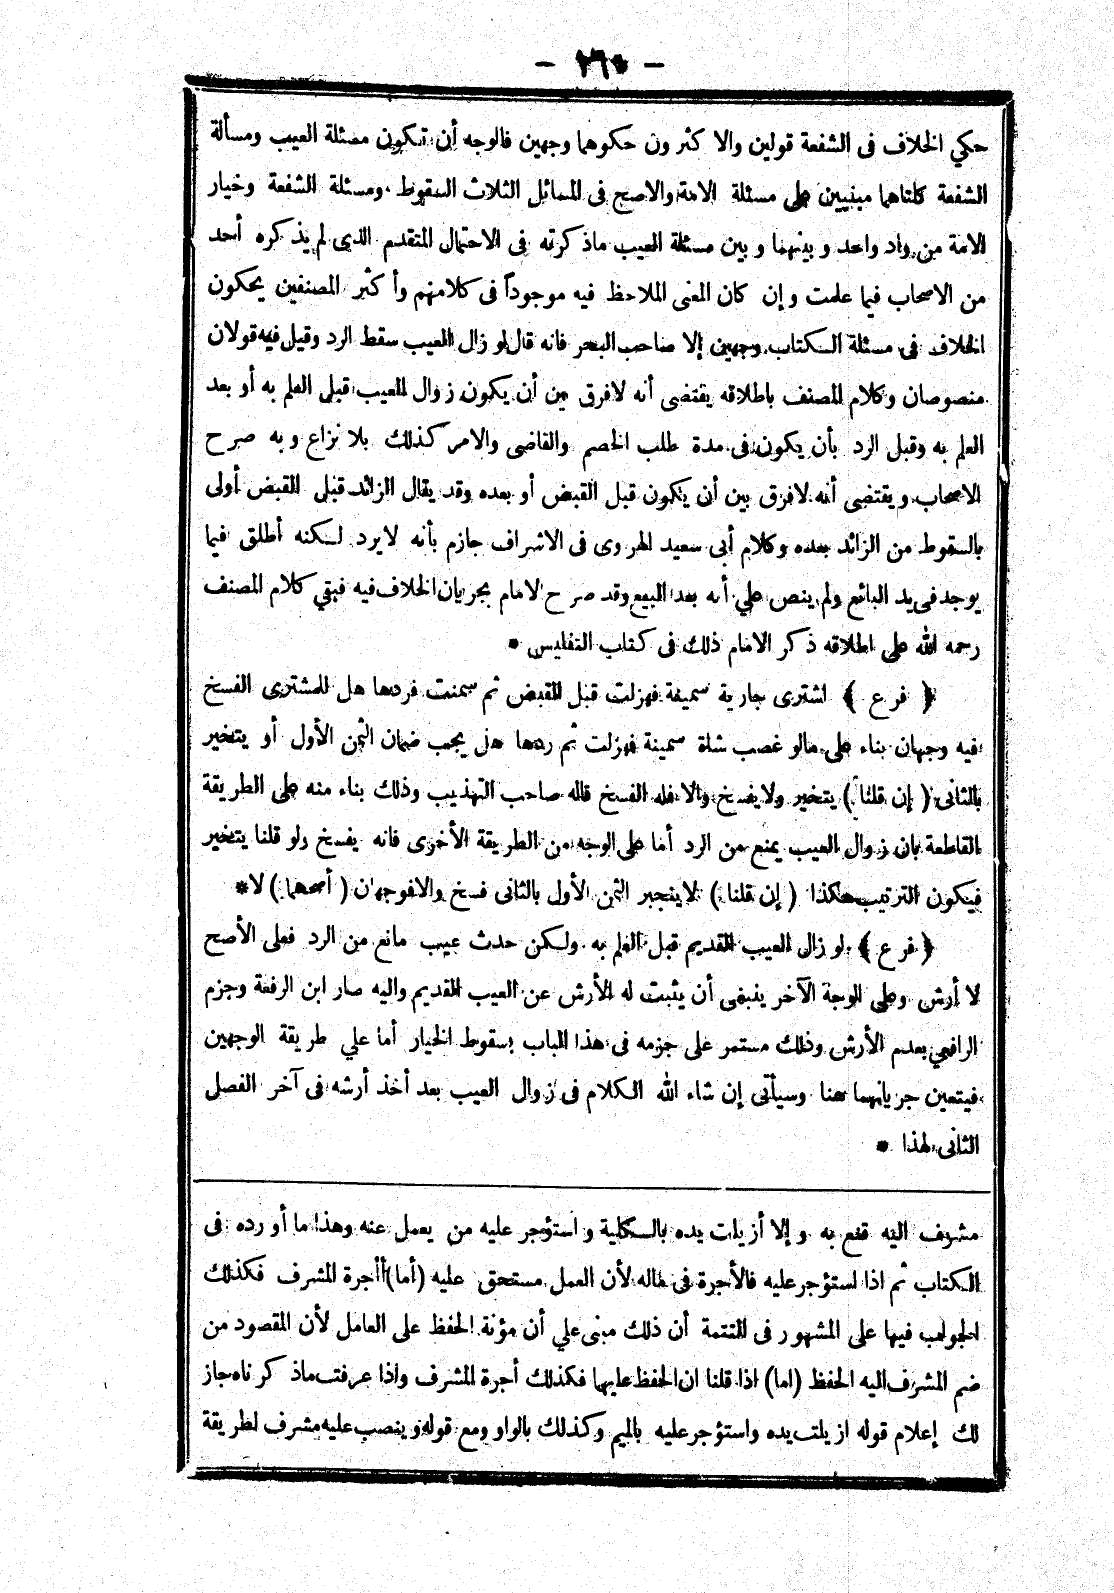 — ٢٦٥ —
حكي الخلاف فى الشفعة قولين والا كثرون حكوهما وجهين فالوجه أن تكون مسئلة العيب ومسألة
الشفعة كلتاهما مبنيين على مسئلة الامة والاصح فى المسائل الثلاث السقوط ومسئلة الشفعة وخيار
الامة من واد واحد و بينهما و بين مسئلة العيب ماذ كرته فى الاحتمال المتقدم الذى لم يذ كره أحد
من الاصحاب فيما علمت و إن كان المعنى الملاحظ فيه موجوداً فى كلامهم وأ كثر المصنفين يحكون
الخلاف فى مسئلة الكتاب وجهين إلا صاحب البحر فانه قال لو زال العيب سقط الرد وقيل فيه قولان
منصوصان وكلام المصنف باطلاقه يقتضى أنه لافرق بين أن يكون زوال العيب قبل العلم به أو بعد
العلم به وقبل الرد بأن يكون فى مدة طلب الخصم والقاضى والامر كذلك بلا نزاع و به صرح
الاصحاب و يقتضى أنه لافرق بين أن يكون قبل القبض أو بعده وقد يقال الزائد قبل القبض أولى
بالسقوط من الزائد بعده وكلام أبى سعيد الهروى فى الاشراف جازم بأنه لايرد لكنه أطلق فيما
يوجد فى يد البائع ولم ينص علي أنه بعد البيع وقد صرح الامام بجريان الخلاف فيه فبقي كلام المصنف
رحمه الله على اطلاقه ذكر الامام ذلك فى كتاب التفليس *
﴿ فرع ﴾ اشترى جارية سمينة فهزلت قبل القبض ثم سمنت فردها هل للمشترى الفسخ
فيه وجهان بناء على مالو غصب شاة سمينة فهزلت ثم ردها هل يجب ضمان الثمن الأول أو يتخير
بالثانى ( إن قلنا ) يتخير ولا يفسخ والا فله الفسخ قاله صاحب التهذيب وذلك بناء منه على الطريقة
القاطعة بان زوال العيب يمنع من الرد أما على الوجه من الطريقة الأخرى فانه يفسخ ولو قلنا يتخير
فيكون الترتيب هكذا ( إن قلنا ) لا ينجبر الثمن الأول بالثانى فسخ والا فوجهان ( أصحهما ) لا *
﴿ فرع ﴾ لو زال العيب القديم قبل العلم به ولكن حدث عيب مانع من الرد فعلى الأصح
لا أرش وعلى الوجة الآخر ينبغى أن يثبت له الأرش عن العيب القديم واليه صار ابن الرفعة وجزم
الرافعي بعدم الأرش وذلك مستمر على جزمه فى هذا الباب بسقوط الخيار أما علي طريقة الوجهين
فيتعين جريانهما هنا وسيأتى إن شاء الله الكلام فى زوال العيب بعد أخذ أرشه فى آخر الفصل
الثانى لهذا *
مشرف اليه قنع به و إلا أزيلت يده بالكلية و استؤجر عليه من يعمل عنه وهذا ما أو رده فى
الكتاب ثم اذا استؤجر عليه فالأجرة فى ماله لأن العمل مستحق عليه (أما) أأجرة المشرف فكذلك
الجواب فيها على المشهور فى التتمة أن ذلك مبنى علي أن مؤنة الحفظ على العامل لأن المقصود من
ضم المشرف اليه الحفظ (اما) اذا قلنا ان الحفظ عليها فكذلك أجرة المشرف واذا عرفت ماذ كرناه جاز
لك إعلام قوله ازيلت يده واستؤجر عليه بالميم وكذلك بالواو ومع قوله و ينصب عليه مشرف لطريقة